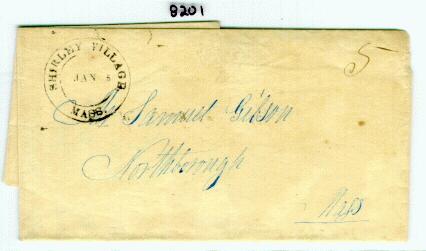 8201
SHIRLEY VILLAGE
JAN 8
MASS.
5
Mr Samuel Gibson
Northborough
Mass